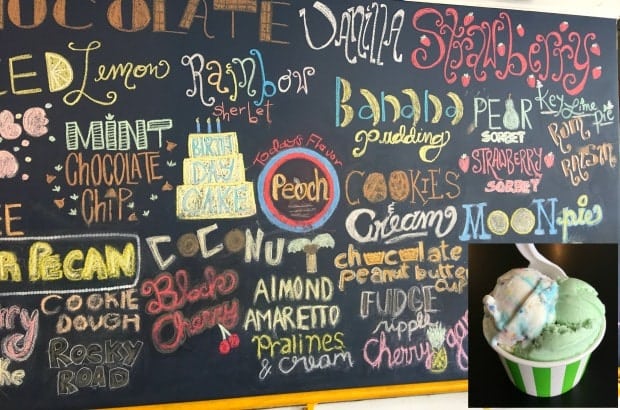 CHOCOLATE
Vanilla
Strawberry
Lemon
Rainbow
Sherbet
Banana
pudding
PEAR
SORBET
Key Lime
Pie
Rum
Raisin
MINT
CHOCOLATE
CHIP
BIRTH
DAY
CAKE
Today's Flavor
Peach
COOKIES
&
Cream
STRAWBERRY
SORBET
MOON pie
PECAN
COCONUT
chocolate
peanut butter
cup
COOKIE
DOUGH
Black
Cherry
ALMOND
AMARETTO
FUDGE
ripple
ROCKY
ROAD
Pralines
& cream
Cherry